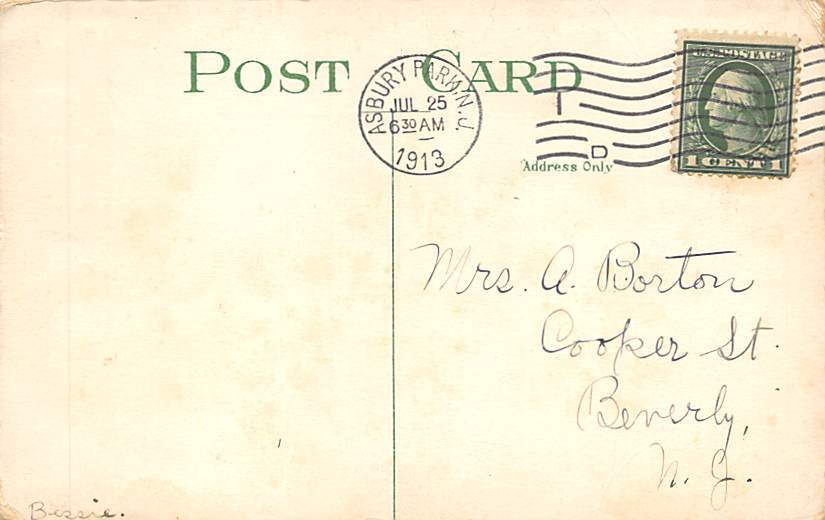 POST CARD
ASBURY PARK, N.J.
JUL 25
6 30 AM
1913
I
D
U.S. POSTAGE
1 CENT 1
Address Only
Mrs. A. Borton
Cooper St.
Beverly,
N. J.
Bessie.